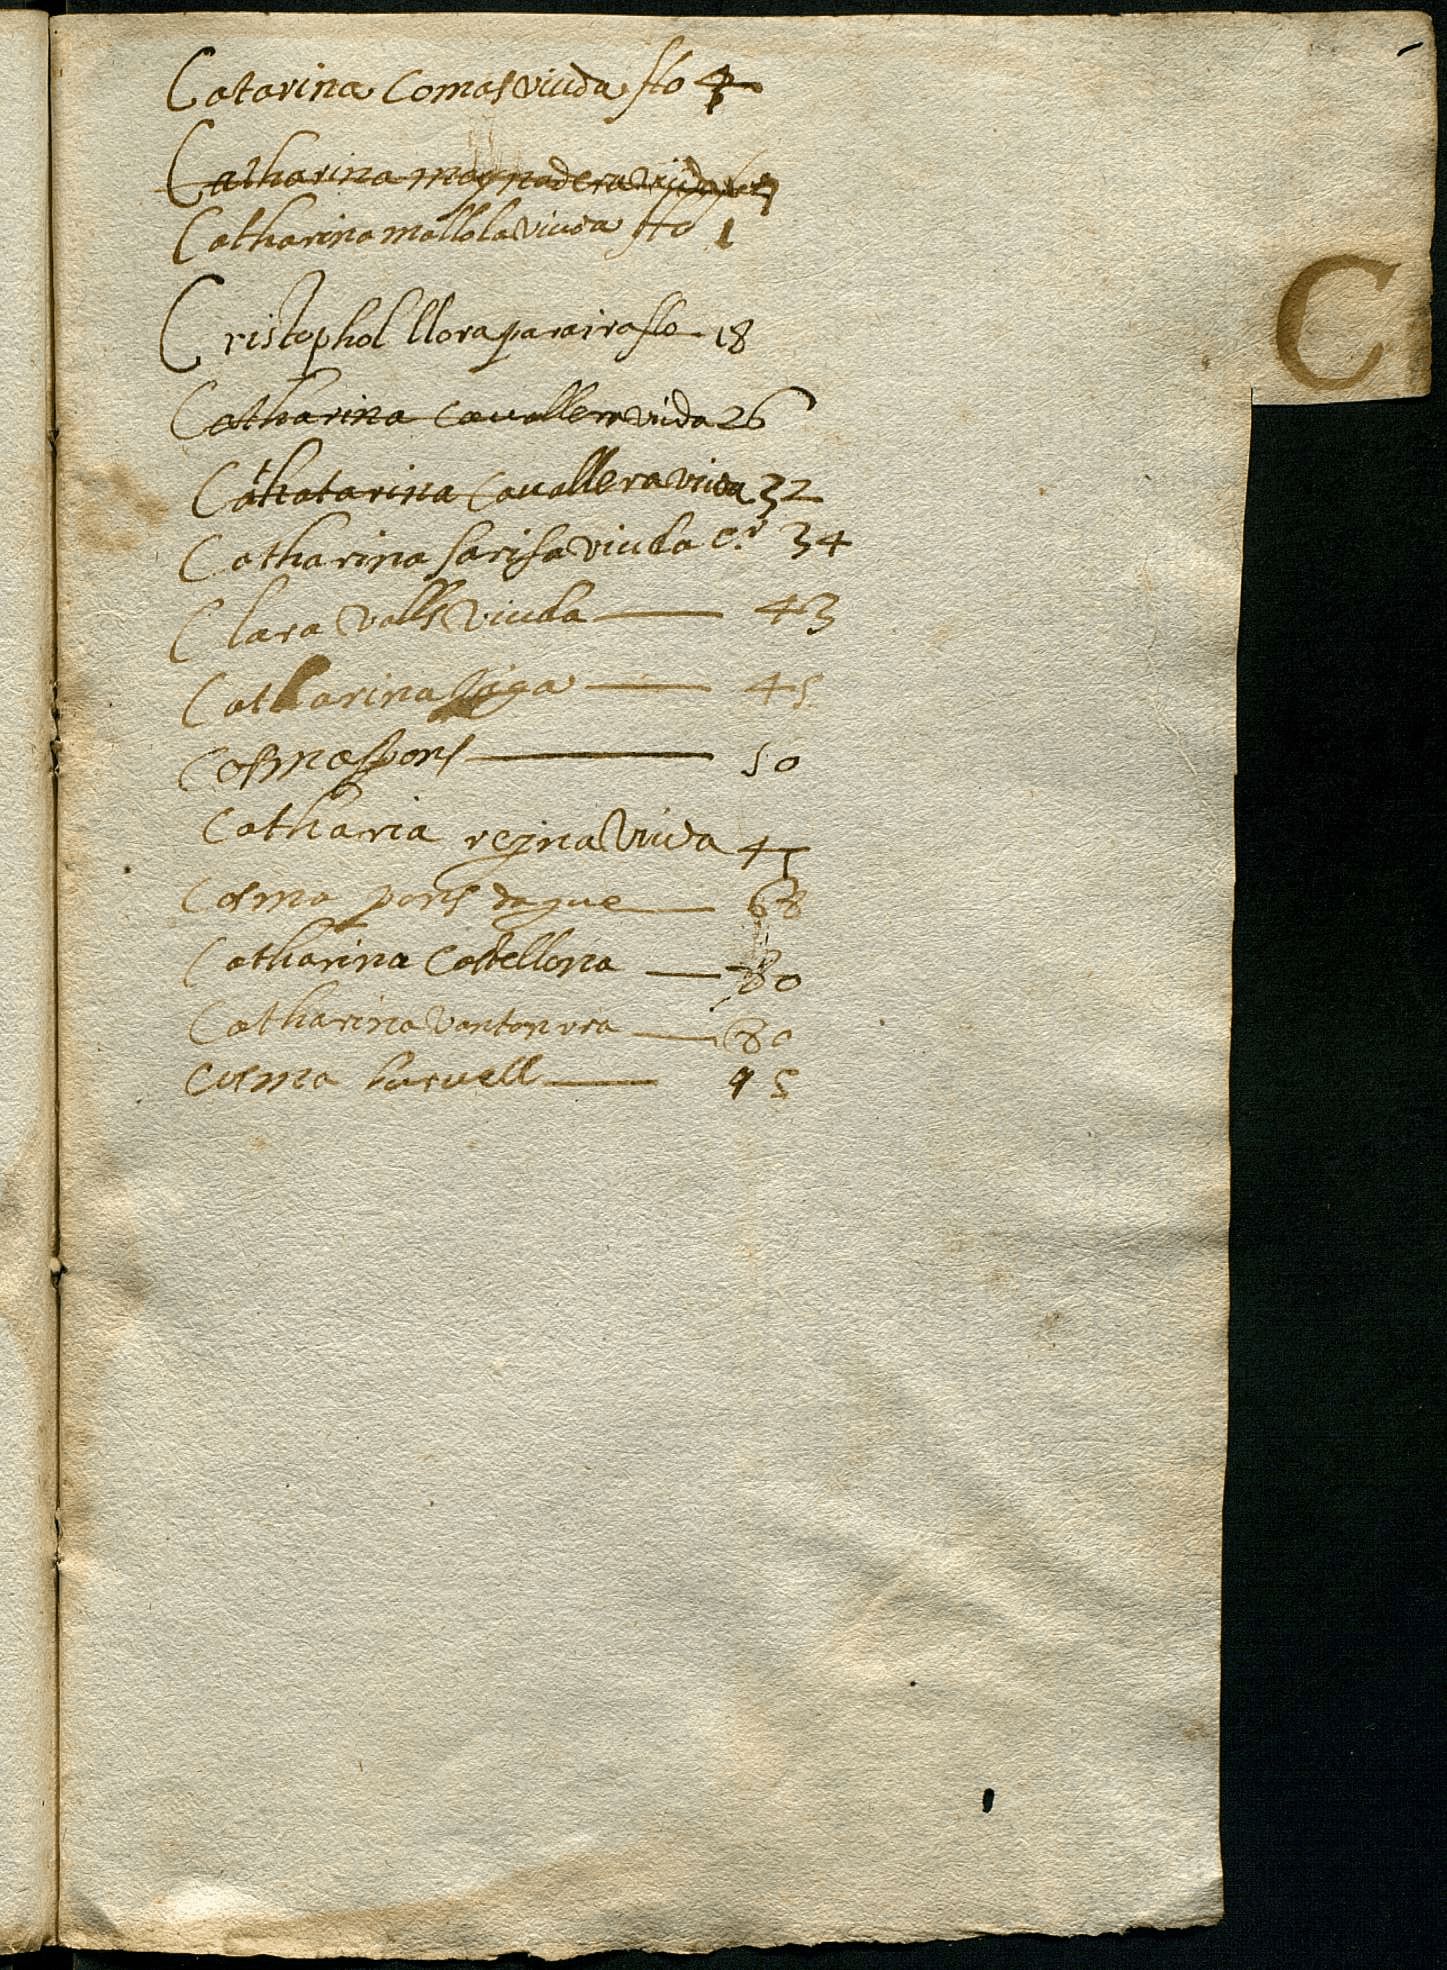 C
Catarina Comas viuda ffo 4
Catharina maynadera viuda
Catharina mallola viuda ffo 1
Cristophol llora paraira ffo 18
Catharina Cavallera viuda 26
Cathatarina Cavallera viuda 32
Catharina sarisa viuda 34
Clara valls viuda — 43
Catharina — 45
Cosma pons — 50
Catharia regina viuda 45
Cosma pons dague — 68
Catharina Castellona — 80
Catharina vantonvra — 80
Cosma — 95